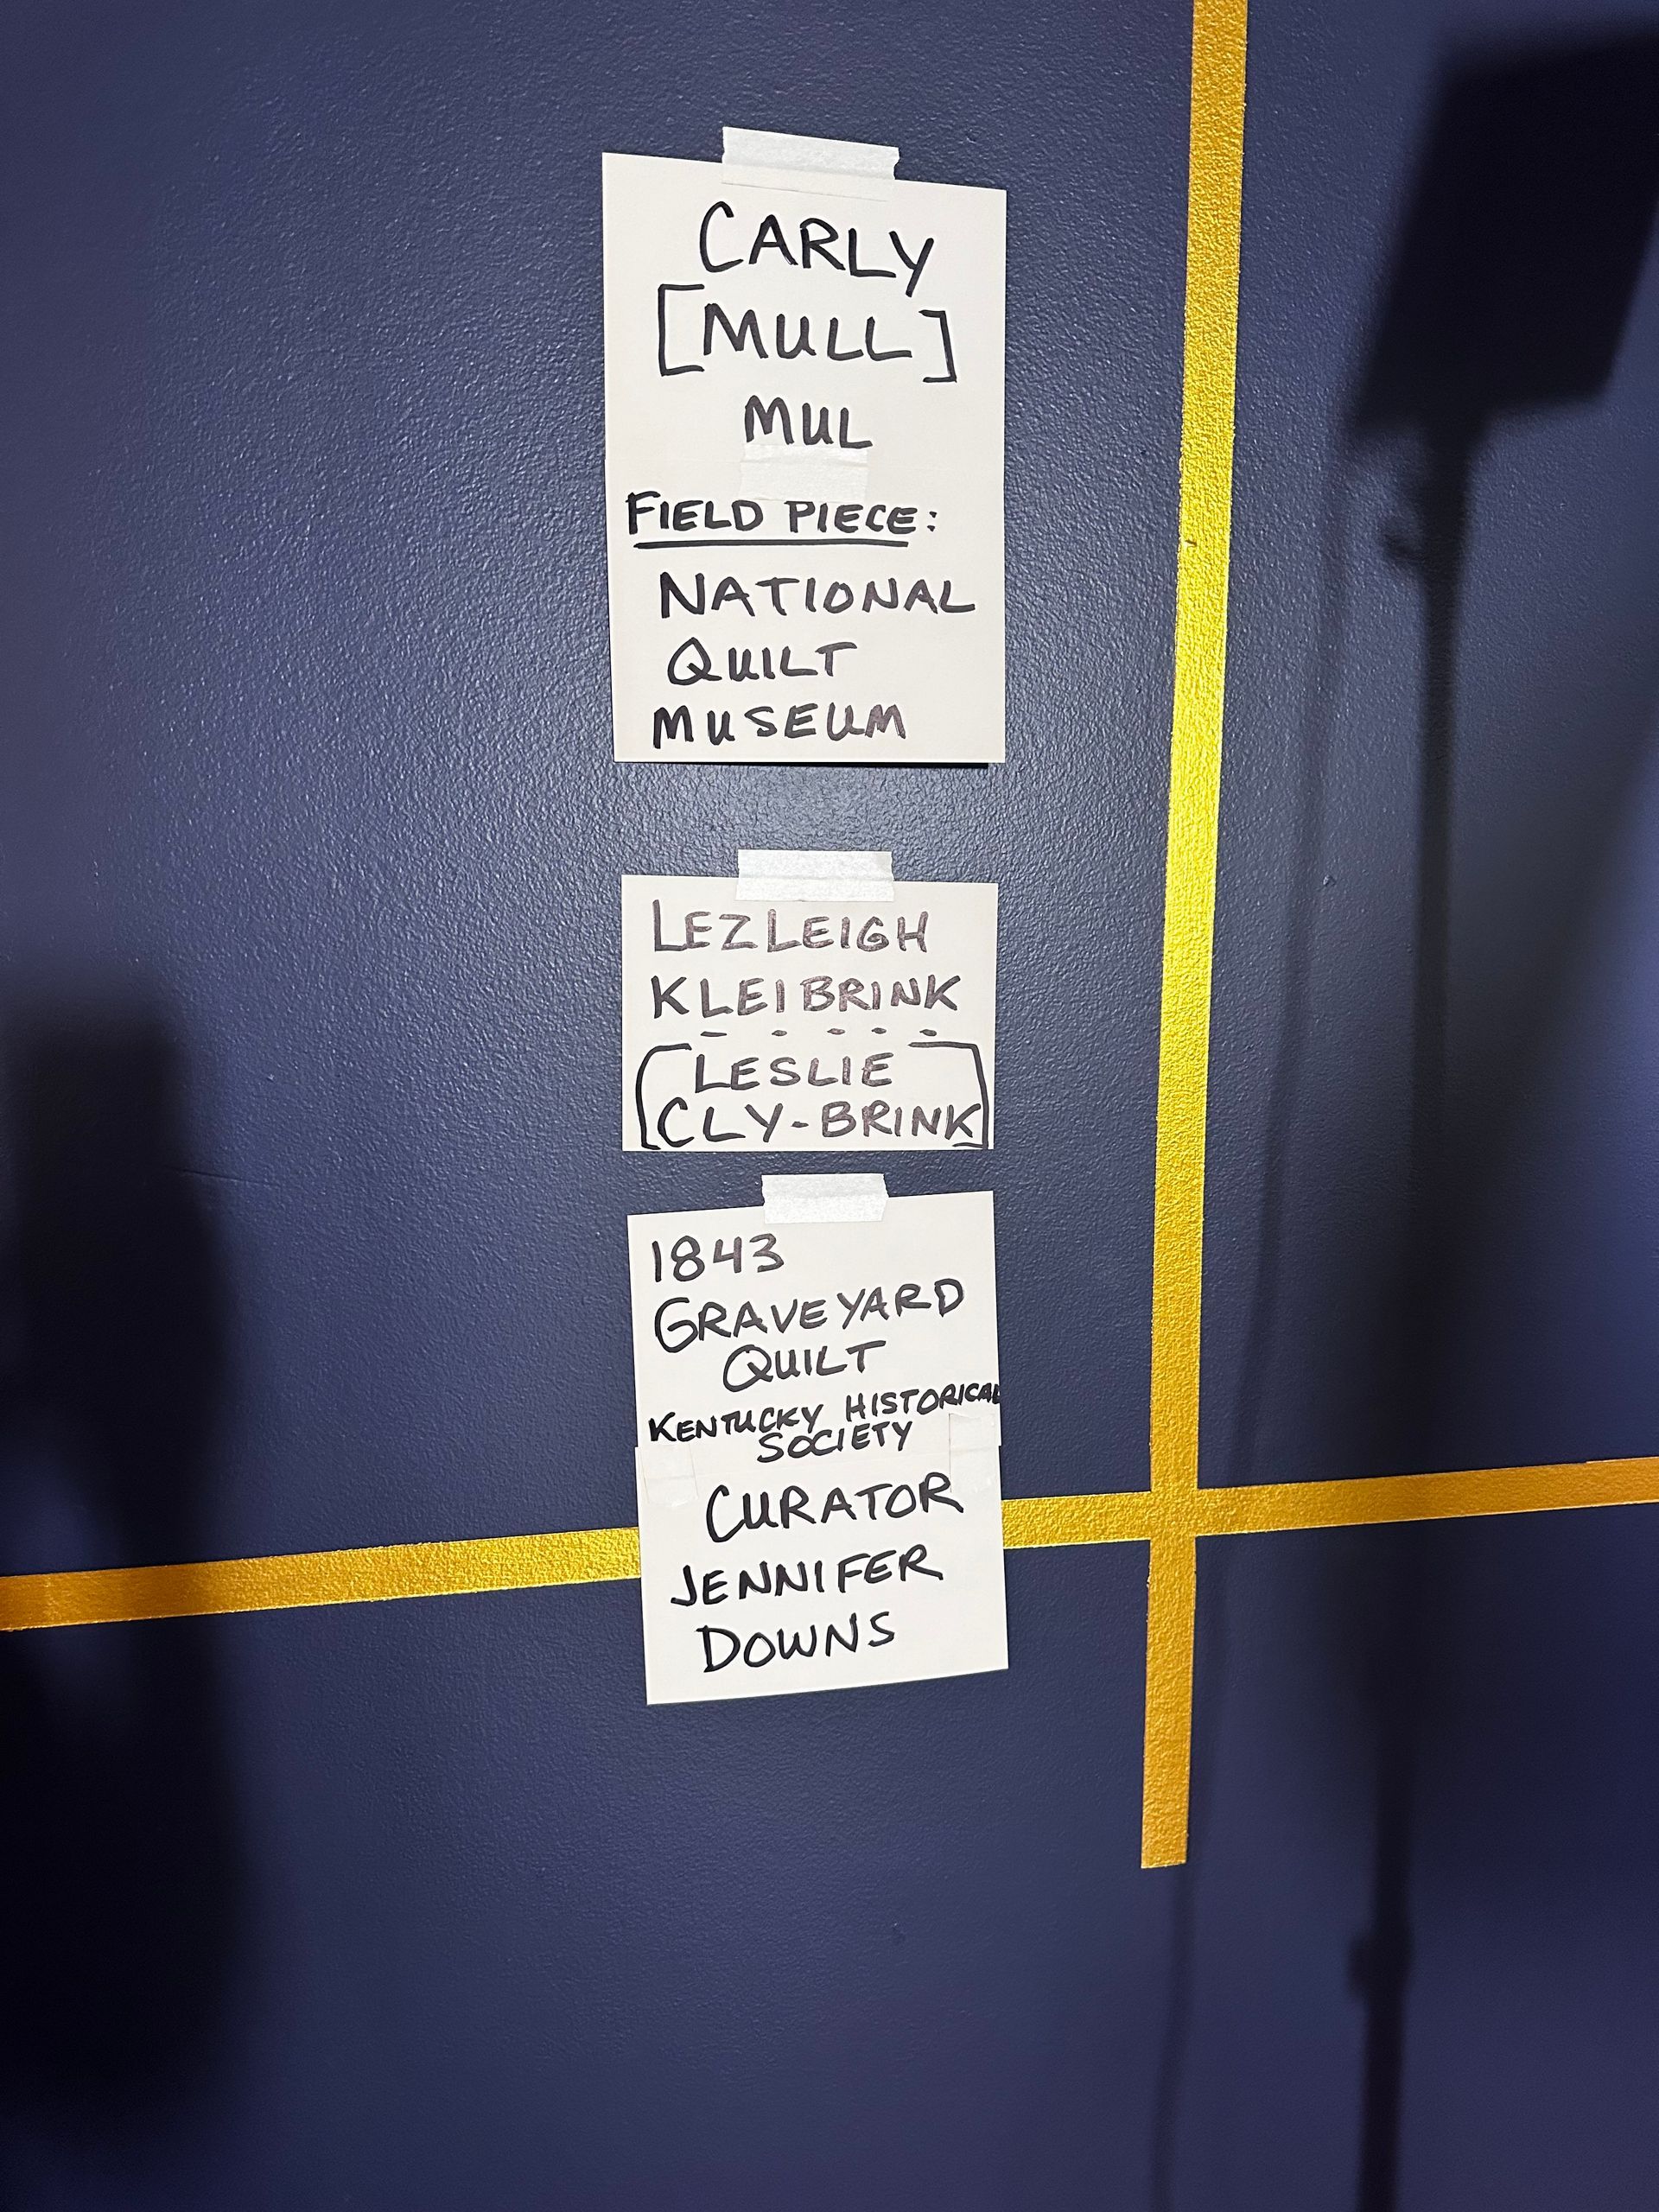 CARLY
[MULL]
MUL
FIELD PIECE:
NATIONAL
QUILT
MUSEUM
LEZLEIGH
KLEIBRINK
[LESLIE
CLY-BRINK]
1843
GRAVEYARD
QUILT
KENTUCKY HISTORICAL
SOCIETY
CURATOR
JENNIFER
DOWNS